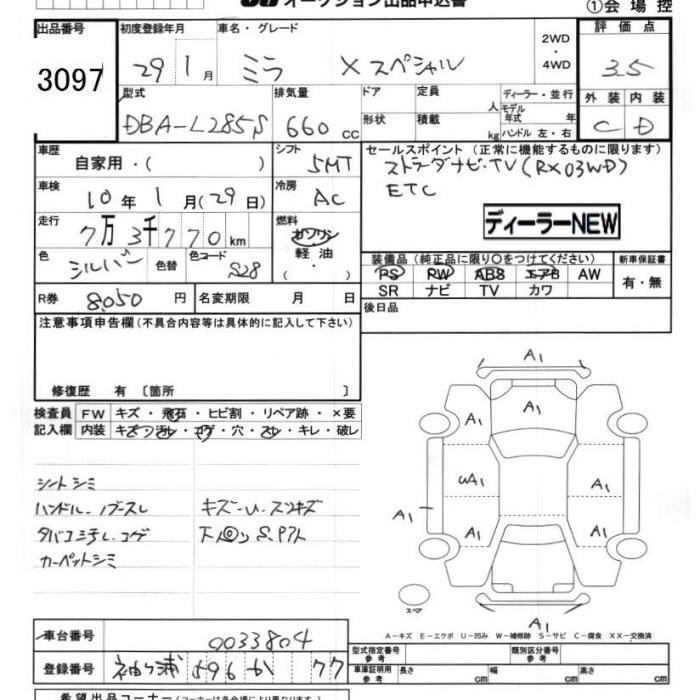 オークション出品申込書
①会場控
出品番号 初度登録年月 車名・グレード 評価点
3097 29 1月 ミラ Xスペシャル 2WD・4WD 3.5
型式 排気量 ドア 定員 人 ディーラー・並行 外装 内装
DBA-L285S 660cc 形状 積載 kg モデル年式 年 ハンドル 左・右 C D
車歴 自家用・( ) シフト 5MT セールスポイント(正常に機能するものに限ります)
ストラーダナビ・TV(RX03WD)
車検 10年1月(29日) 冷房 AC ETC
ディーラーNEW
走行 7万3千770km 燃料 ガソリン
軽油
( ・ )
色 シルバー 色替 色コード S28
装備品(純正品に限り〇をつけてください) 新車保証書
PS RW ABS エアB AW 有・無
SR ナビ TV カワ
R券 8,050円 名変期限 月 日 後日品
注意事項申告欄(不具合内容等は具体的に記入して下さい)
修復歴 有 〔箇所 〕
検査員 FW キズ・飛石・ヒビ割・リペア跡・×要
記入欄 内装 キズ・汚レ・コゲ・穴・スレ・キレ・破レ
シートシミ
ハンドル・ノブスレ キズ・U・スリキズ
タバコ ミチレ コゲ
カーペットシミ
A1
A1
A1 A1
uA1 A1
A1
A1 A1
スペア
A1
A-キズ E-エクボ U-凹み W-補修跡 S-サビ C-腐食 XX-交換済
車台番号 0033804 型式指定番号 参考 類別区分番号 参考
登録番号 袖ヶ浦 596 か 77 車庫証明用 参考 長さ cm 幅 cm 高さ cm
希望出品コーナー